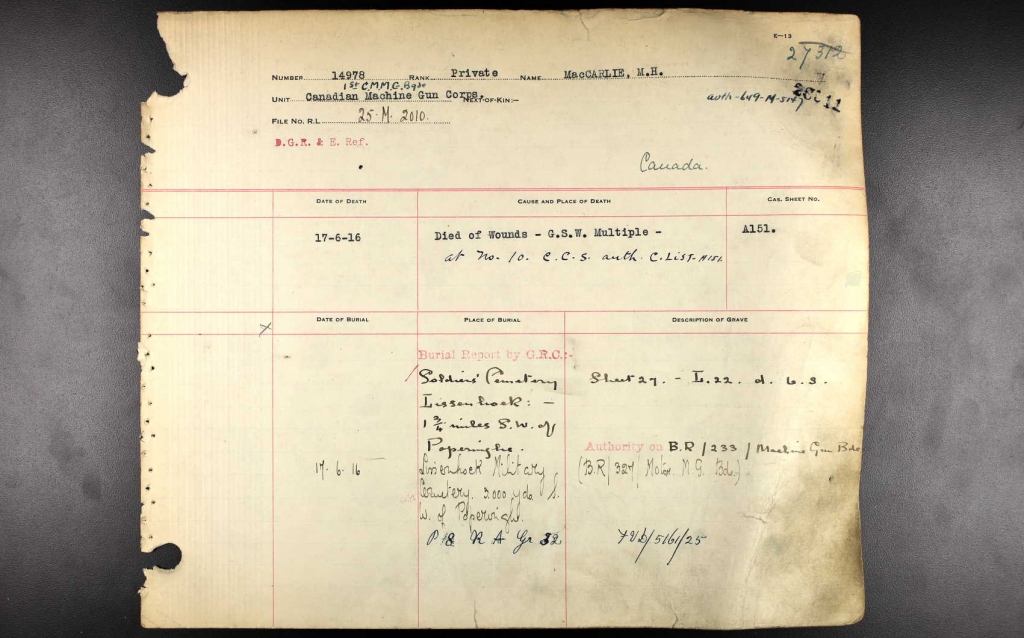 E—13
27312
NUMBER 14978 RANK Private NAME MacCARLIE, M.H.
1st C.M.M.G. Bgde
UNIT Canadian Machine Gun Corps. NEXT-OF-KIN:—
auth-649-M-
FILE NO. R.L. 25-M. 2010.
D.G.R. & E. Ref.
Canada.
DATE OF DEATH CAUSE AND PLACE OF DEATH CAS. SHEET NO.
17-6-16 Died of Wounds - G.S.W. Multiple - A151.
at No. 10. C.C.S. auth. C.List. A151.
DATE OF BURIAL PLACE OF BURIAL DESCRIPTION OF GRAVE
x
Burial Report by G.R.C.:-
Soldiers' Cemetery Sheet 27. - L.22. d. 6.3.
Lissenhoek: -
1 3/4 miles S.W. of
Poperinghe. Authority on B.R/233/Machine Gun Bde
17.6.16 Lissenhock Military (B.R/327/Motor M.G. Bde)
Cemetery. 3000 yds S.
W. of Poperinghe.
P 8 R A Gr 32